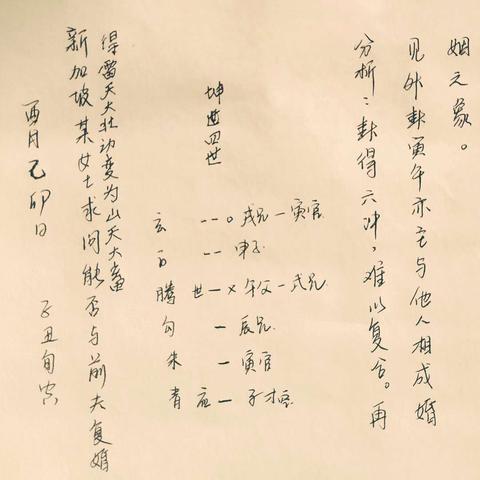 酉月乙卯日 子丑旬空
新加坡某女士求问能否与前夫复婚
得雷天大壮动变为山天大畜
坤世四世
玄 -- 。戌兄—寅官
白 -- 申子
腾 世—× 午父—戌兄
勾 — 辰兄
朱 — 寅官
青 应— 子才空
分析：卦得六冲，难以复合。再
见外卦寅午亦主与他人相成婚
姻之象。